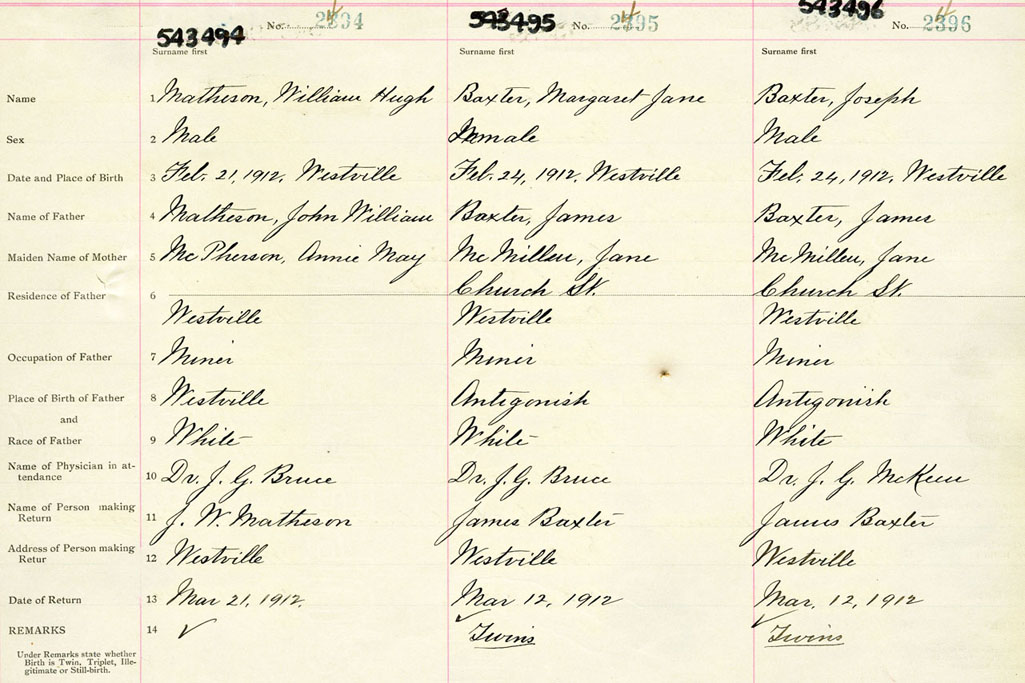 543494 No. 2394 543495 No. 2395 543496 No. 2396
Surname first Surname first Surname first
Name 1 Matheson, William Hugh Baxter, Margaret Jane Baxter, Joseph
Sex 2 Male Female Male
Date and Place of Birth 3 Feb. 21, 1912. Westville Feb. 24, 1912. Westville Feb. 24, 1912. Westville
Name of Father 4 Matheson, John William Baxter, James Baxter, James
Maiden Name of Mother 5 McPherson, Annie May McMillen, Jane McMillen, Jane
Residence of Father 6 Church St. Church St.
Westville Westville Westville
Occupation of Father 7 Miner Miner Miner
Place of Birth of Father 8 Westville Antigonish Antigonish
and
Race of Father 9 White White White
Name of Physician in at-
tendance 10 Dr. J. G. Bruce Dr. J. G. Bruce Dr. J. G. McKeen
Name of Person making
Return 11 J. W. Matheson James Baxter James Baxter
Address of Person making
Retur 12 Westville Westville Westville
Date of Return 13 Mar 21, 1912. Mar 12, 1912 Mar. 12, 1912
REMARKS 14 ✓ ✓ Twins ✓ Twins
Under Remarks state whether
Birth is Twin, Triplet, Ille-
gitimate or Still-birth.